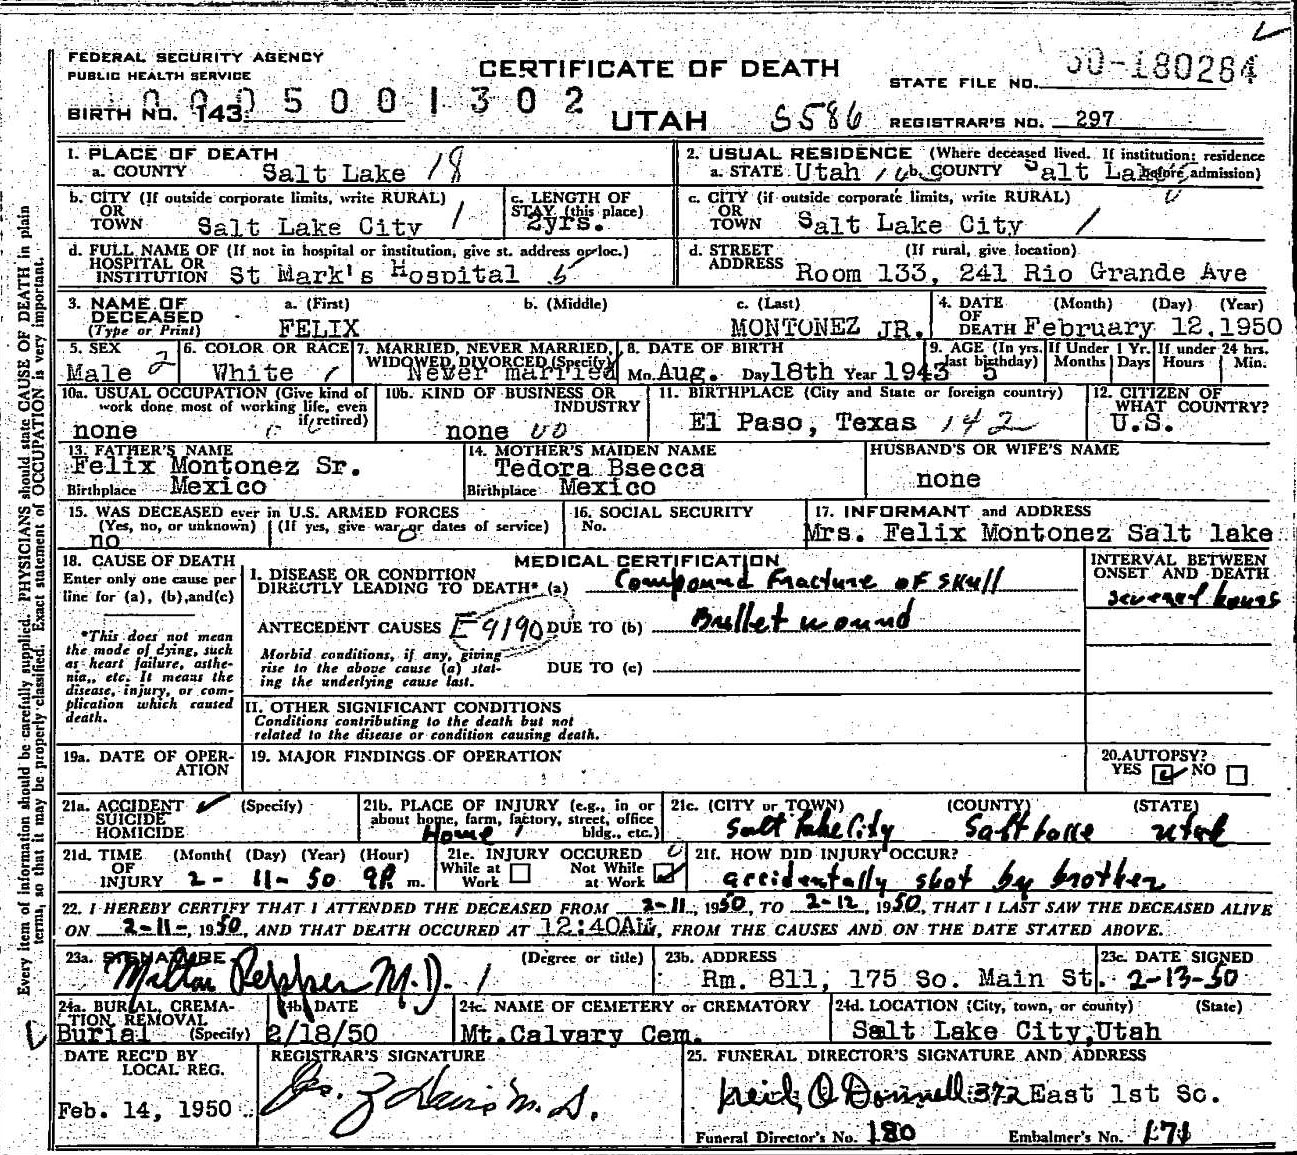 FEDERAL SECURITY AGENCY
PUBLIC HEALTH SERVICE
CERTIFICATE OF DEATH
STATE FILE NO. 50-180284
BIRTH NO. 143 0005001302
UTAH S586
REGISTRAR'S NO. 297
1. PLACE OF DEATH
a. COUNTY Salt Lake 18
2. USUAL RESIDENCE (Where deceased lived. If institution: residence before admission)
a. STATE Utah b. COUNTY Salt Lake
b. CITY (If outside corporate limits, write RURAL)
OR
TOWN Salt Lake City 1
c. LENGTH OF
STAY (this place)
2yrs.
c. CITY (if outside corporate limits, write RURAL)
OR
TOWN Salt Lake City 1
d. FULL NAME OF (If not in hospital or institution, give st. address or loc.)
HOSPITAL OR
INSTITUTION St Mark's Hospital 5
d. STREET (If rural, give location)
ADDRESS Room 133, 241 Rio Grande Ave
3. NAME OF
DECEASED
(Type or Print)
a. (First) b. (Middle) c. (Last)
FELIX MONTONEZ JR.
4. DATE (Month) (Day) (Year)
OF
DEATH February 12, 1950
5. SEX
Male 2
6. COLOR OR RACE
White 1
7. MARRIED, NEVER MARRIED,
WIDOWED, DIVORCED (Specify)
Never married
8. DATE OF BIRTH
Mo. Aug. Day 18th Year 1943
9. AGE (In yrs. last birthday) 5
If Under 1 Yr. Months Days
If under 24 hrs. Hours Min.
10a. USUAL OCCUPATION (Give kind of
work done most of working life, even
if retired)
none
10b. KIND OF BUSINESS OR
INDUSTRY
none 00
11. BIRTHPLACE (City and State or foreign country)
El Paso, Texas 142
12. CITIZEN OF
WHAT COUNTRY?
U.S.
13. FATHER'S NAME
Felix Montonez Sr.
Birthplace Mexico
14. MOTHER'S MAIDEN NAME
Tedora Bsecca
Birthplace Mexico
HUSBAND'S OR WIFE'S NAME
none
15. WAS DECEASED ever in U.S. ARMED FORCES
(Yes, no, or unknown) (If yes, give war or dates of service)
no 0
16. SOCIAL SECURITY
No.
17. INFORMANT and ADDRESS
Mrs. Felix Montonez Salt lake
18. CAUSE OF DEATH
Enter only one cause per
line for (a), (b), and (c)
*This does not mean
the mode of dying, such
as heart failure, asthe-
nia., etc. It means the
disease, injury, or com-
plication which caused
death.
MEDICAL CERTIFICATION
I. DISEASE OR CONDITION
DIRECTLY LEADING TO DEATH* (a) Compound Fracture of Skull
ANTECEDENT CAUSES E9190 DUE TO (b) Bullet wound
Morbid conditions, if any, giving
rise to the above cause (a) stat-
ing the underlying cause last.
DUE TO (c)
II. OTHER SIGNIFICANT CONDITIONS
Conditions contributing to the death but not
related to the disease or condition causing death.
INTERVAL BETWEEN
ONSET AND DEATH
several hours
19a. DATE OF OPER-
ATION
19. MAJOR FINDINGS OF OPERATION
20. AUTOPSY?
YES NO
21a. ACCIDENT (Specify)
SUICIDE
HOMICIDE
21b. PLACE OF INJURY (e.g., in or
about home, farm, factory, street, office
bldg., etc.)
Home
21c. (CITY or TOWN) (COUNTY) (STATE)
Salt Lake City Salt Lake Utah
21d. TIME (Month) (Day) (Year) (Hour)
OF
INJURY 2-11-50 9P. m.
21e. INJURY OCCURED
While at Work
Not While at Work
21f. HOW DID INJURY OCCUR?
accidentally shot by brother
22. I HEREBY CERTIFY THAT I ATTENDED THE DECEASED FROM 2-11, 1950, TO 2-12, 1950, THAT I LAST SAW THE DECEASED ALIVE
ON 2-11-, 1950, AND THAT DEATH OCCURED AT 12:40AM, FROM THE CAUSES AND ON THE DATE STATED ABOVE.
23a. SIGNATURE (Degree or title)
Milton Pepper M.D. 1
23b. ADDRESS
Rm. 811, 175 So. Main St.
23c. DATE SIGNED
2-13-50
24a. BURIAL, CREMA-
TION, REMOVAL
Burial (Specify)
24b. DATE
2/18/50
24c. NAME OF CEMETERY or CREMATORY
Mt. Calvary Cem.
24d. LOCATION (City, town, or county) (State)
Salt Lake City, Utah
DATE REC'D BY
LOCAL REG.
Feb. 14, 1950
REGISTRAR'S SIGNATURE
25. FUNERAL DIRECTOR'S SIGNATURE AND ADDRESS
O'Donnell 372 East 1st So.
Funeral Director's No. 180 Embalmer's No. 171
Every item of information should be carefully supplied. PHYSICIANS should state CAUSE OF DEATH in plain
term, so that it may be properly classified. Exact statement of OCCUPATION is very important.